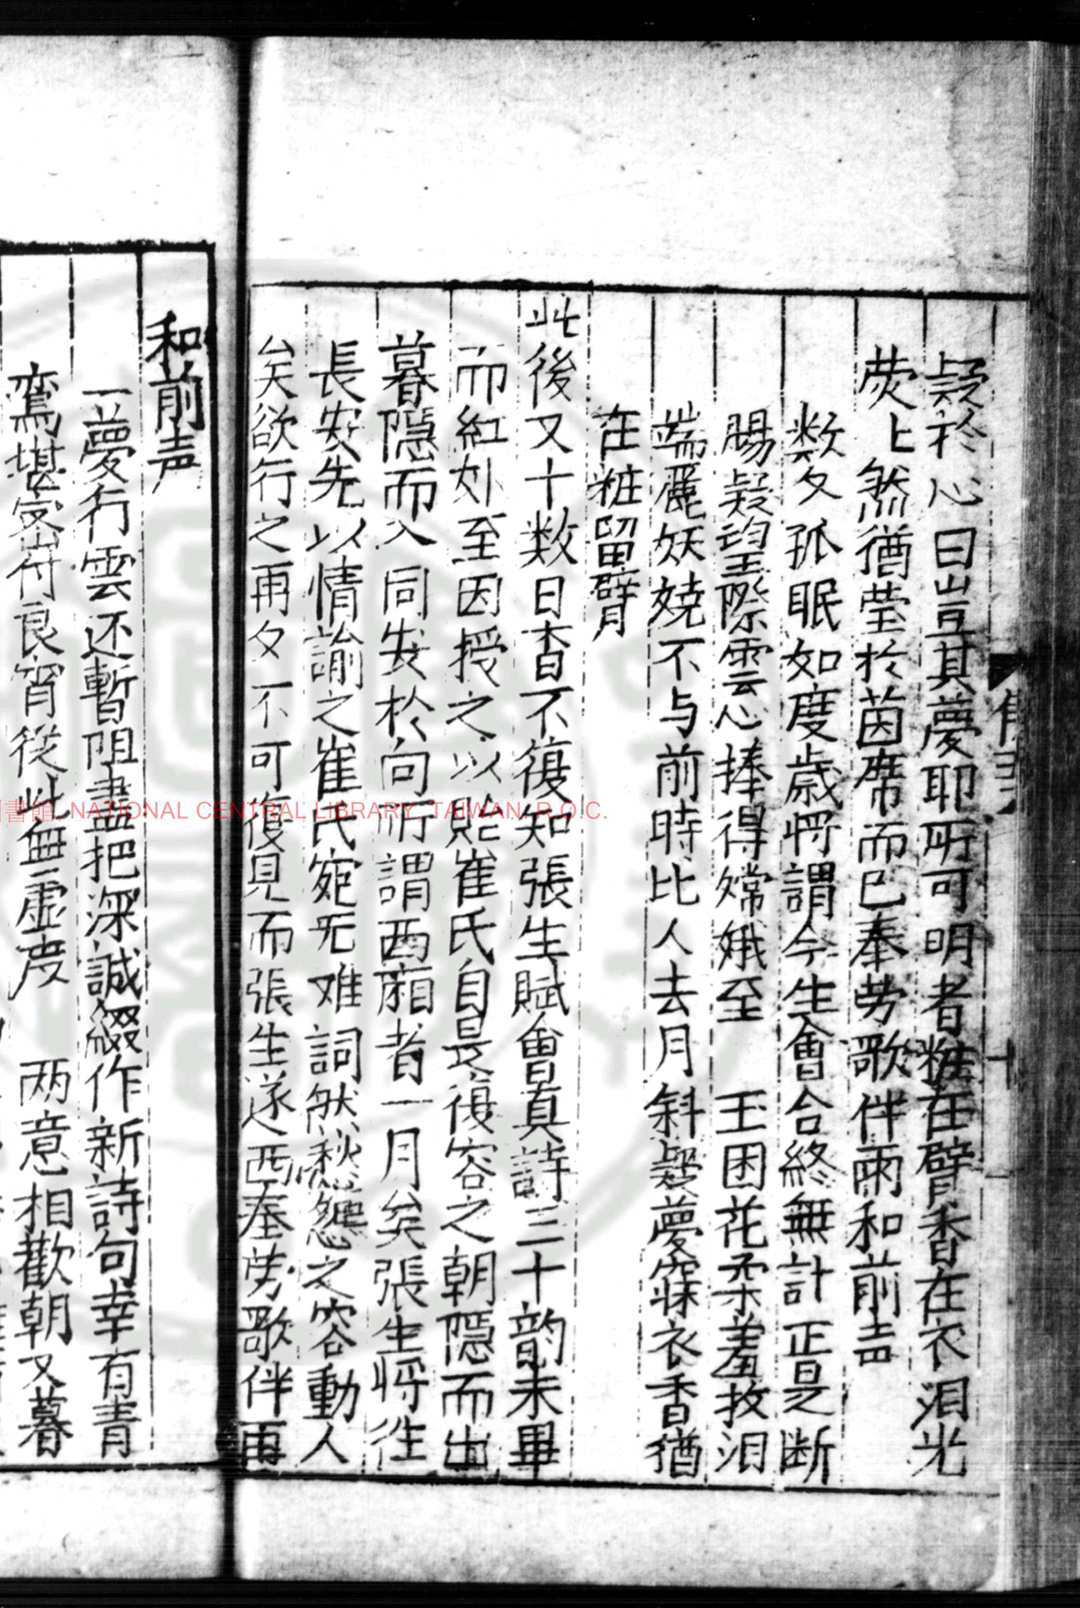 疑於心曰豈其夢耶所可明者粧在臂香在衣泪光
荧上然猶莹於茵席而已奉劳歌伴再和前声
数夕孤眠如度歳将謂今生會合終無計正是断
腸疑望際雲心捧得嫦娥至 玉困花柔羞抆泪
端麗妖嬈不与前時比人去月斜疑夢寐衣香猶
在粧留臂
此後又十数日杳不復知張生賦會真詩三十韵未畢
而紅娘至因授之以貽崔氏自是復容之朝隠而出
暮隠而入同安於向所謂西廂者一月矣張生将往
長安先以情諭之崔氏宛无难詞然愁怨之容動人
矣欲行之再夕不可復見而張生遂西奉劳歌伴再
和前声
一夢行雲还暫阻盡把深誠綴作新詩句幸有青
鸞堪密符良宵從此無虛度 两意相歡朝又暮
國書館 NATIONAL CENTRAL LIBRARY, TAIWAN, R.O.C.